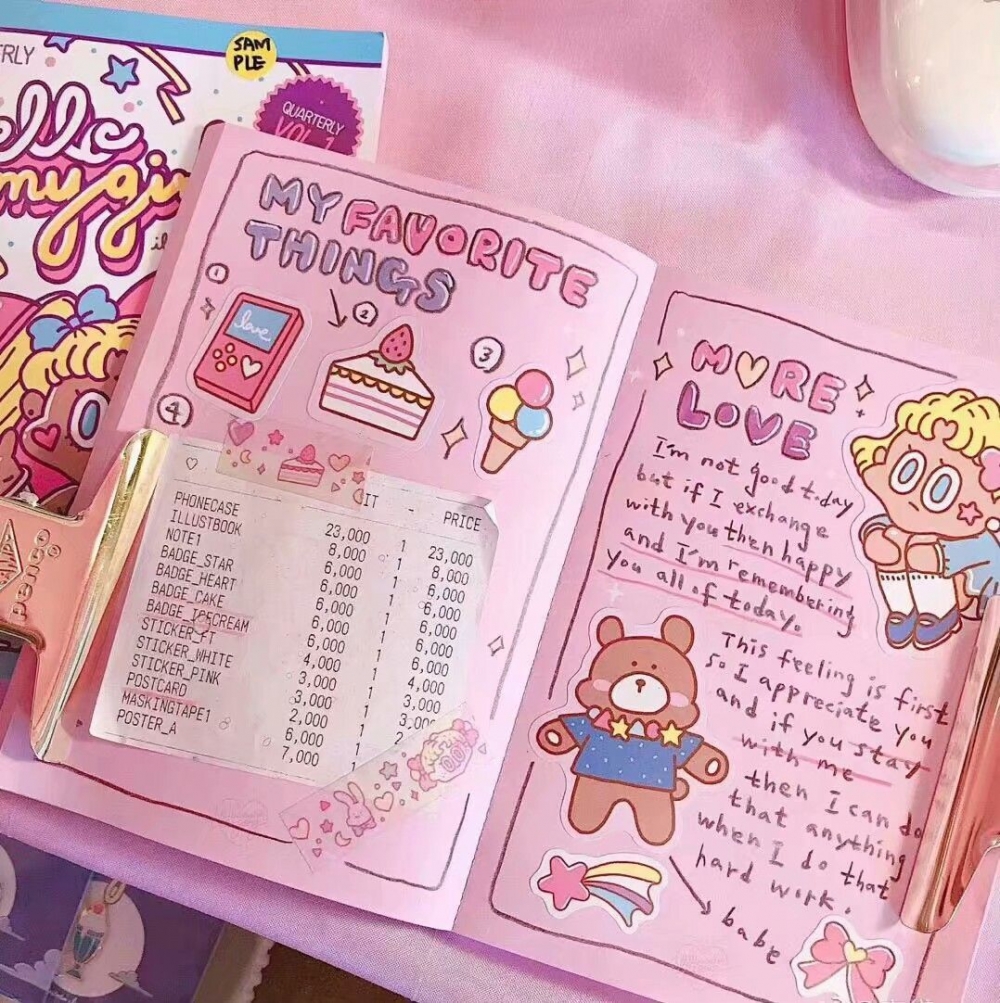 RLY
SAM
PLE
QUARTERLY
VOL.1
ello
my gi
MY FAVORITE
THINGS
1
love
2
3
4
IT - PRICE
PHONECASE 23,000 1 23,000
ILLUSTBOOK 8,000 1 8,000
NOTE1 6,000 1 6,000
BADGE_STAR 6,000 1 6,000
BADGE_HEART 6,000 1 6,000
BADGE_CAKE 6,000 1 6,000
BADGE_ICECREAM 6,000 1 6,000
STICKER_FT 4,000 1 4,000
STICKER_WHITE 3,000 1 3,000
STICKER_PINK 3,000 1
POSTCARD 2,000 1
MASKINGTAPE1 6,000
POSTER_A 7,000
penco
MORE
LOVE
I'm not good today
but if I exchange
with you then happy
and I'm remembering
you all of today.
This feeling is first
so I appreciate you
and if you stay
with me
then I can do
that anything
when I do that
hard work.
babe